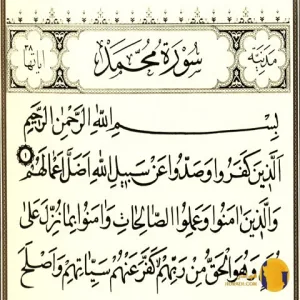 مَدَنِيَّة سُورَةُ مُحَمَّد اٰيَاتُهَا ٣٨
بِسْمِ اللهِ الرَّحْمٰنِ الرَّحِيمِ
اَلَّذِينَ كَفَرُوا وَصَدُّوا عَنْ سَبِيلِ اللهِ اَضَلَّ اَعْمَالَهُمْ ١
وَالَّذِينَ اٰمَنُوا وَعَمِلُوا الصَّالِحَاتِ وَاٰمَنُوا بِمَا نُزِّلَ عَلٰى
وَهُوَ الْحَقُّ مِنْ رَبِّهِمْ كَفَّرَ عَنْهُمْ سَيِّـَٔاتِهِمْ وَاَصْلَحَ